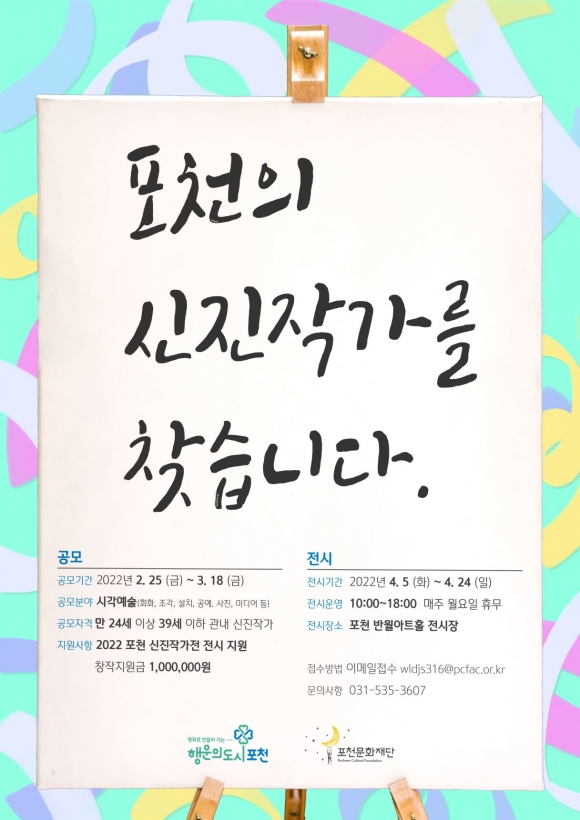 포천의
신진작가를
찾습니다.
공모
공모기간 2022년 2. 25 (금) ~ 3. 18 (금)
공모분야 시각예술(회화, 조각, 설치, 공예, 사진, 미디어 등)
공모자격 만 24세 이상 39세 이하 관내 신진작가
지원사항 2022 포천 신진작가전 전시 지원
창작지원금 1,000,000원
전시
전시기간 2022년 4. 5 (화) ~ 4. 24 (일)
전시운영 10:00~18:00 매주 월요일 휴무
전시장소 포천 반월아트홀 전시장
접수방법 이메일접수 wldjs316@pcfac.or.kr
문의사항 031-535-3607
평화로 만들어 가는
행운의도시포천
포천문화재단
Pocheon Cultural Foundation